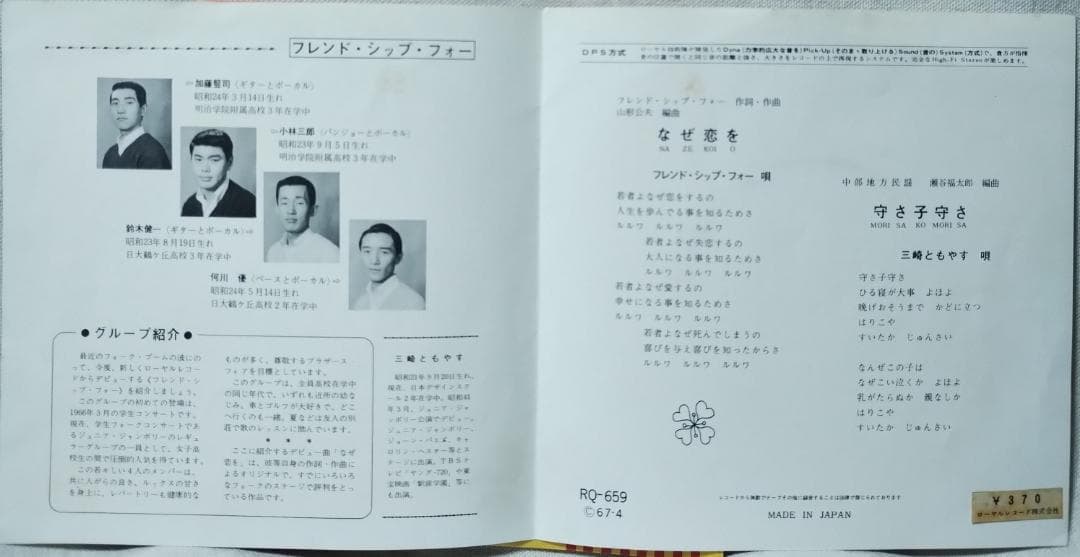 フレンド・シップ・フォー
⇦加藤賢司（ギターとボーカル）
昭和24年3月14日生れ
明治学院附属高校3年在学中
⇦小林三郎（バンジョーとボーカル）
昭和23年9月5日生れ
明治学院附属高校3年在学中
鈴木健一（ギターとボーカル）⇨
昭和23年8月19日生れ
日大鶴ケ丘高校3年在学中
何川 優（ベースとボーカル）⇨
昭和24年5月14日生れ
日大鶴ケ丘高校2年在学中
●グループ紹介●
最近のフォーク・ブームの波にの
って、今度、新しくローヤルレコー
ドからデビューする《フレンド・シ
ップ・フォー》を紹介しましょう。
このグループの初めての登場は、
1966年3月の学生コンサートです。
現在、学生フォークコンサートであ
るジュニア・ジャンボリーのレギュ
ラーグループの一員として、女子高
校生の間で圧倒的人気を得ています。
この若々しい4人のメンバーは、
共に人がらの良さ、ルックスの甘さ
を身上に、レパートリーも健康的な
ものが多く、尊敬するブラザース・
フォアを目標としています。
このグループは、全員高校在学中
の同じ年代で、いずれも近所の幼な
なじみ。車とゴルフが大好きで、どこ
へ行くのも一緒。夏などは友人の別
荘で歌のレッスンに励んでいます。
＊ ＊ ＊
ここに紹介するデビュー曲「なぜ
恋を」は、彼等自身の作詞・作曲に
よるオリジナルで、すでにいろいろ
なフォークのステージで評判をとっ
ている作品です。
三崎ともやす
昭和21年9月20日生れ。
現在、日本デザインスク
ール2年在学中。昭和41
年3月、ジュニア・ジャ
ンボリー公演でデビュー。
ジュニア・ジャンボリー、
ジョーン・バエズ、キャ
ロリン・ヘスター等とス
テージに出演。TBSテ
レビ「ヤング・720」や東
宝映画「駅前学園」等に
も出演。
DPS方式
ローヤル技術陣が開発したDyna(力学的広大な音を)Pick-Up(そのまゝ取り上げる)Sound(音の)System(方式)で、貴方が指揮
者の位置で聞くと同じ音の距離と強さ、大きさをレコードの上で再現するシステムです。完全なHigh-Fi Stereoが楽しめます。
フレンド・シップ・フォー 作詞・作曲
山形公夫 編曲
なぜ恋を
NA ZE KOI O
フレンド・シップ・フォー 唄
若者よなぜ恋をするの
人生を歩んでる事を知るためさ
ルルワ ルルワ ルルワ
若者よなぜ失恋するの
大人になる事を知るためさ
ルルワ ルルワ ルルワ
若者よなぜ愛するの
幸せになる事を知るためさ
ルルワ ルルワ ルルワ
若者よなぜ死んでしまうの
喜びを与え喜びを知ったからさ
ルルワ ルルワ ルルワ
中部地方民謡 瀬谷福太郎 編曲
守さ子守さ
MORI SA KO MORI SA
三崎ともやす 唄
守さ子守さ
ひる寝が大事 よほよ
晩げおそうまで かどに立つ
はりこや
すいたか じゅんさい
なんぜこの子は
なぜこい泣くか よほよ
乳がたらぬか 親なしか
はりこや
すいたか じゅんさい
RQ-659
Ⓒ67-4
レコードから無断でテープその他に録音することは法律で禁じられております
MADE IN JAPAN
￥370
ローヤルレコード株式会社